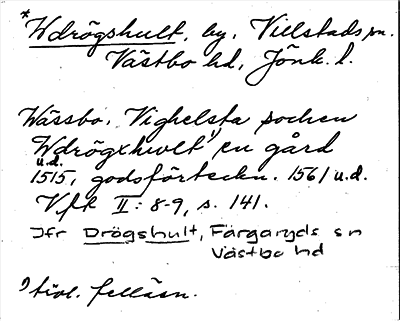 *Wdrögshult, by, Villstads sn.
Västbo hd, Jönk. l.
Wässbo, Vighelsta sochen
Wdrögxhwlt 1) en gård
u.d.
1515, godsförteckn. 1561 u.d.
Vfk II: 8-9, s. 141.
Jfr Drögshult, Färgaryds sn
Västbo hd
1) tröl. felläsn.